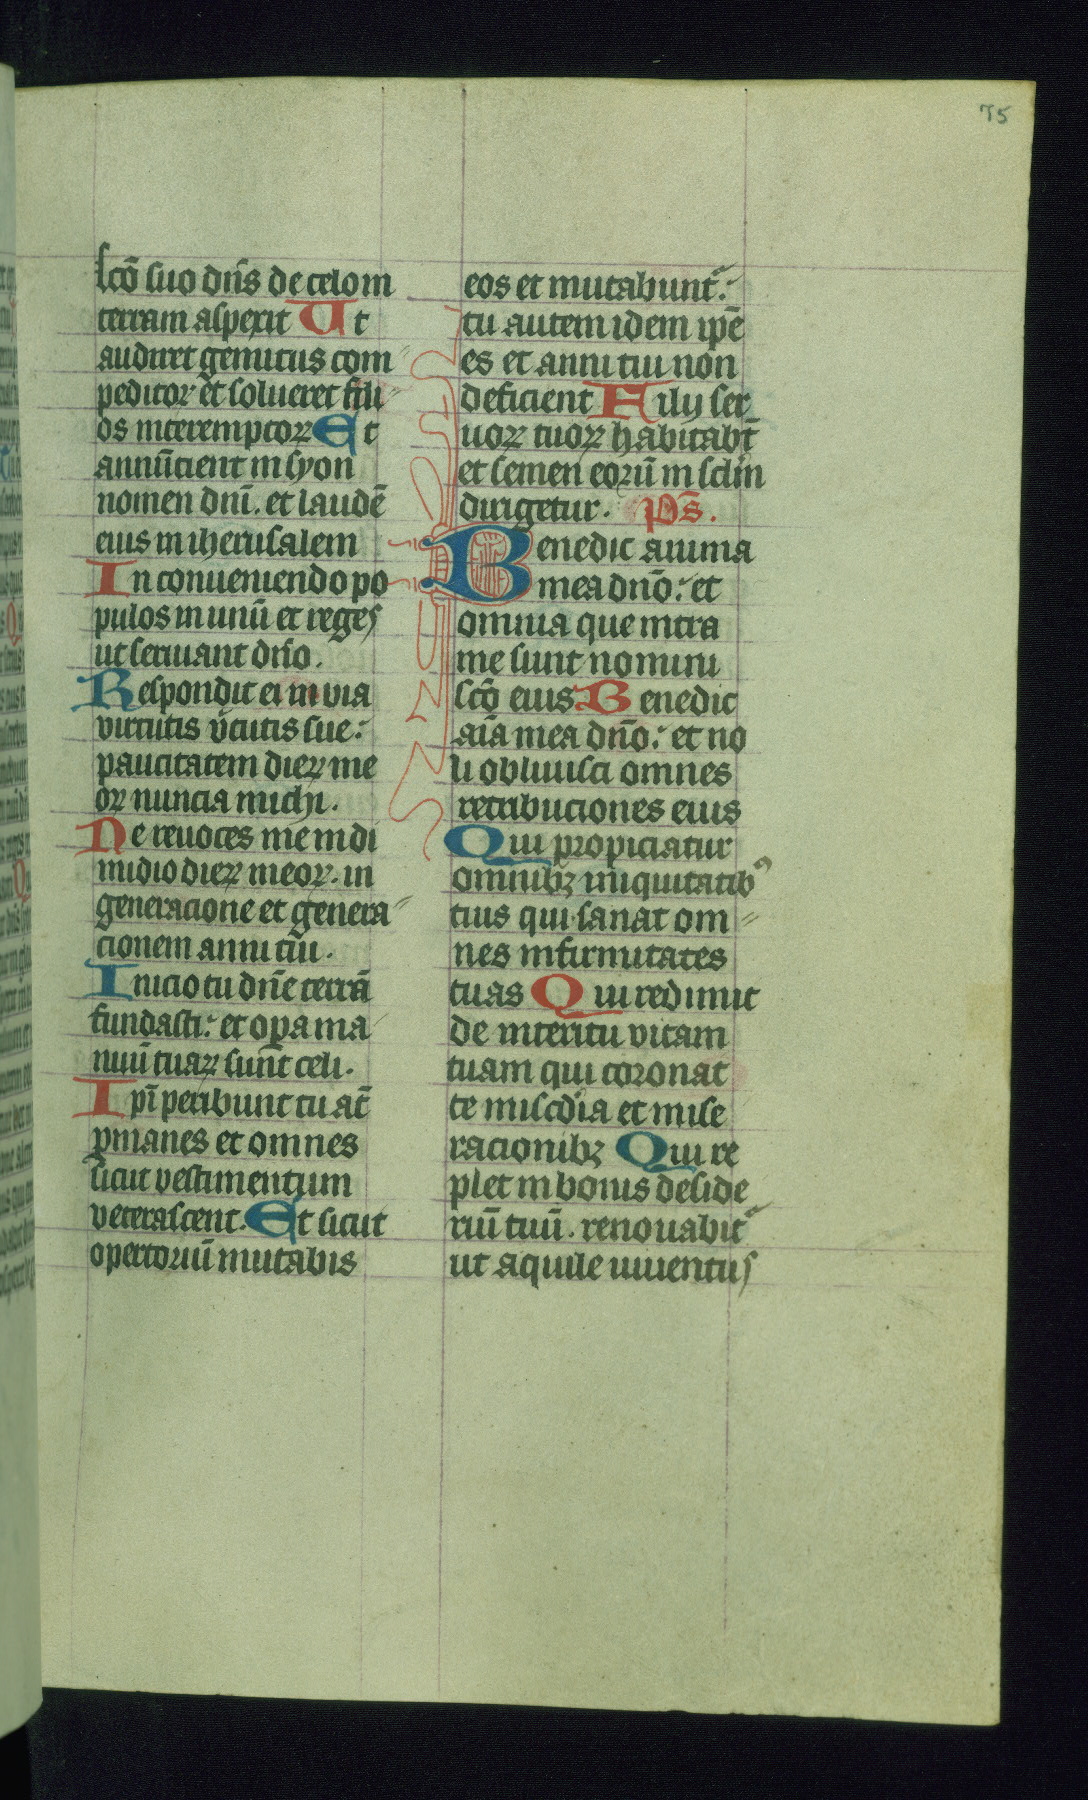 75
scō suo dn̄s de celo in
terram aspexit Ut
audiret gemitus com
peditoꝝ et solueret fili
os interemptoꝝ Et
annūcient in syon
nomen dn̄i. et laudē
eius in iherusalem
In conueniendo po
pulos in unū et reges
ut seruiant dn̄o.
Respondit ei in via
virtutis v̄tutis sue:
paucitatem dieꝝ me
oꝝ nuncia michi.
Ne reuoces me in di
midio dieꝝ meoꝝ. in
generacione et genera
cionem anni tui.
Inicio tu dn̄e terrā
fundasti: et oꝑa ma
nuū tuaꝝ sunt celi.
Ipī peribunt tu at̄
ꝑmanes et omnes
sicut vestimentum
veterascent. Et sicut
opertoriū mutabis
eos et mutabunt᷑:
tu autem idem ip̄e
es et anni tui non
deficient Filij ser
uoꝝ tuoꝝ habitabt̄
et semen eorū in sclm̄
dirigetur. p̄s.
Benedic anima
mea dn̄o: et
omnia que intra
me sunt nomini
scō eius Benedic
aīa mea dn̄o: et no
li obliuisci omnes
retribuciones eius
Qui propiciatur
omnibꝫ iniquitatibꝰ
tuis qui sanat om
nes infirmitates
tuas Qui redimit
de interitu vitam
tuam qui coronat
te misc̄dia et mise
racionibꝫ Qui re
plet in bonis deside
riū tuū. renouabit᷑
ut aquile iuuentus